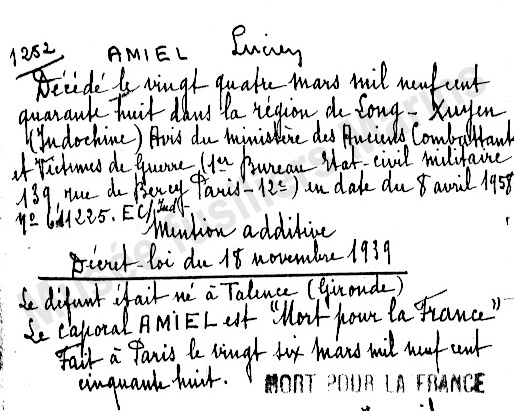 1252 AMIEL Lucien
Décédé le vingt quatre mars mil neuf cent
quarante huit dans la région de Long-Xuyen
(Indochine) Avis du ministère des Anciens Combattant
et Victimes de Guerre (1er Bureau Etat-civil militaire
139 rue de Bercy Paris-12e) en date du 8 avril 1958
EC/Ind
Mention additive
Décret-loi du 18 novembre 1939
Le défunt était né à Talence (Gironde)
Le caporal AMIEL est "Mort pour la France"
Fait à Paris le vingt six mars mil neuf cent
cinquante huit. MORT POUR LA FRANCE